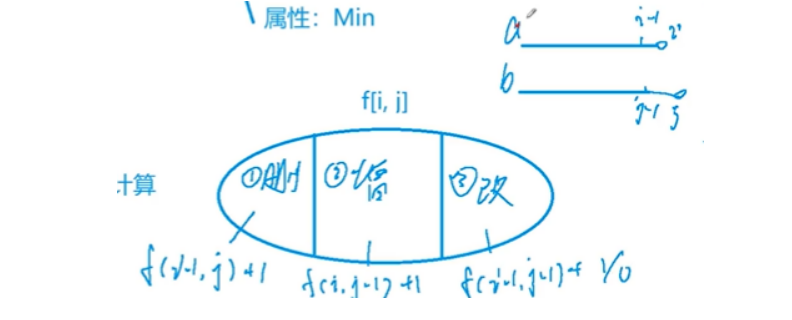 属性：Min
a
i-1 i
b
j-1 j
f[i, j]
计算
①删 ②增 ③改
f(i-1, j)+1 f(i, j-1)+1 f(i-1, j-1)+ 1/0